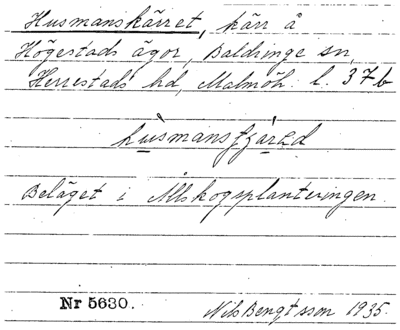 Husmanskärret, kärr å
Högestads ägor, Baldringe sn,
Herrestads hd, Malmöh. l. 37b
Beläget i Allskogsplanteringen.
Nr 5630.
Nils Bengtsson 1935.